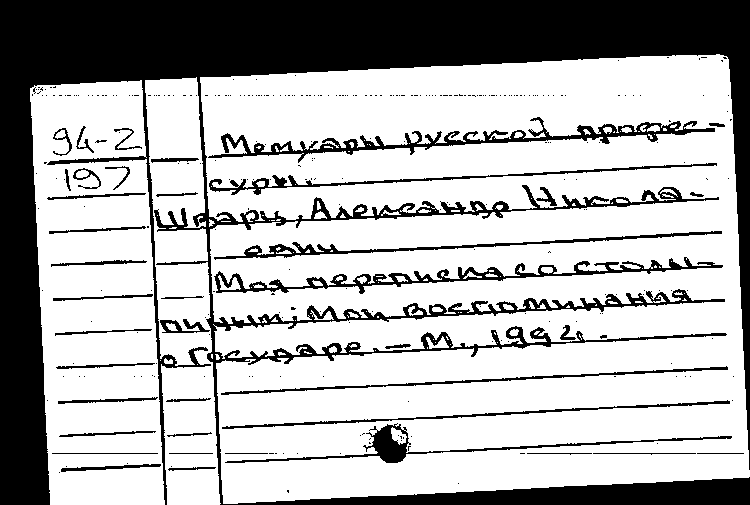 94-2
197
Мемуары русской профес-
суры.
Шварц, Александр Никола-
евич
Моя переписка со столы-
пиным; Мои воспоминания
о Государе. — М., 1994.